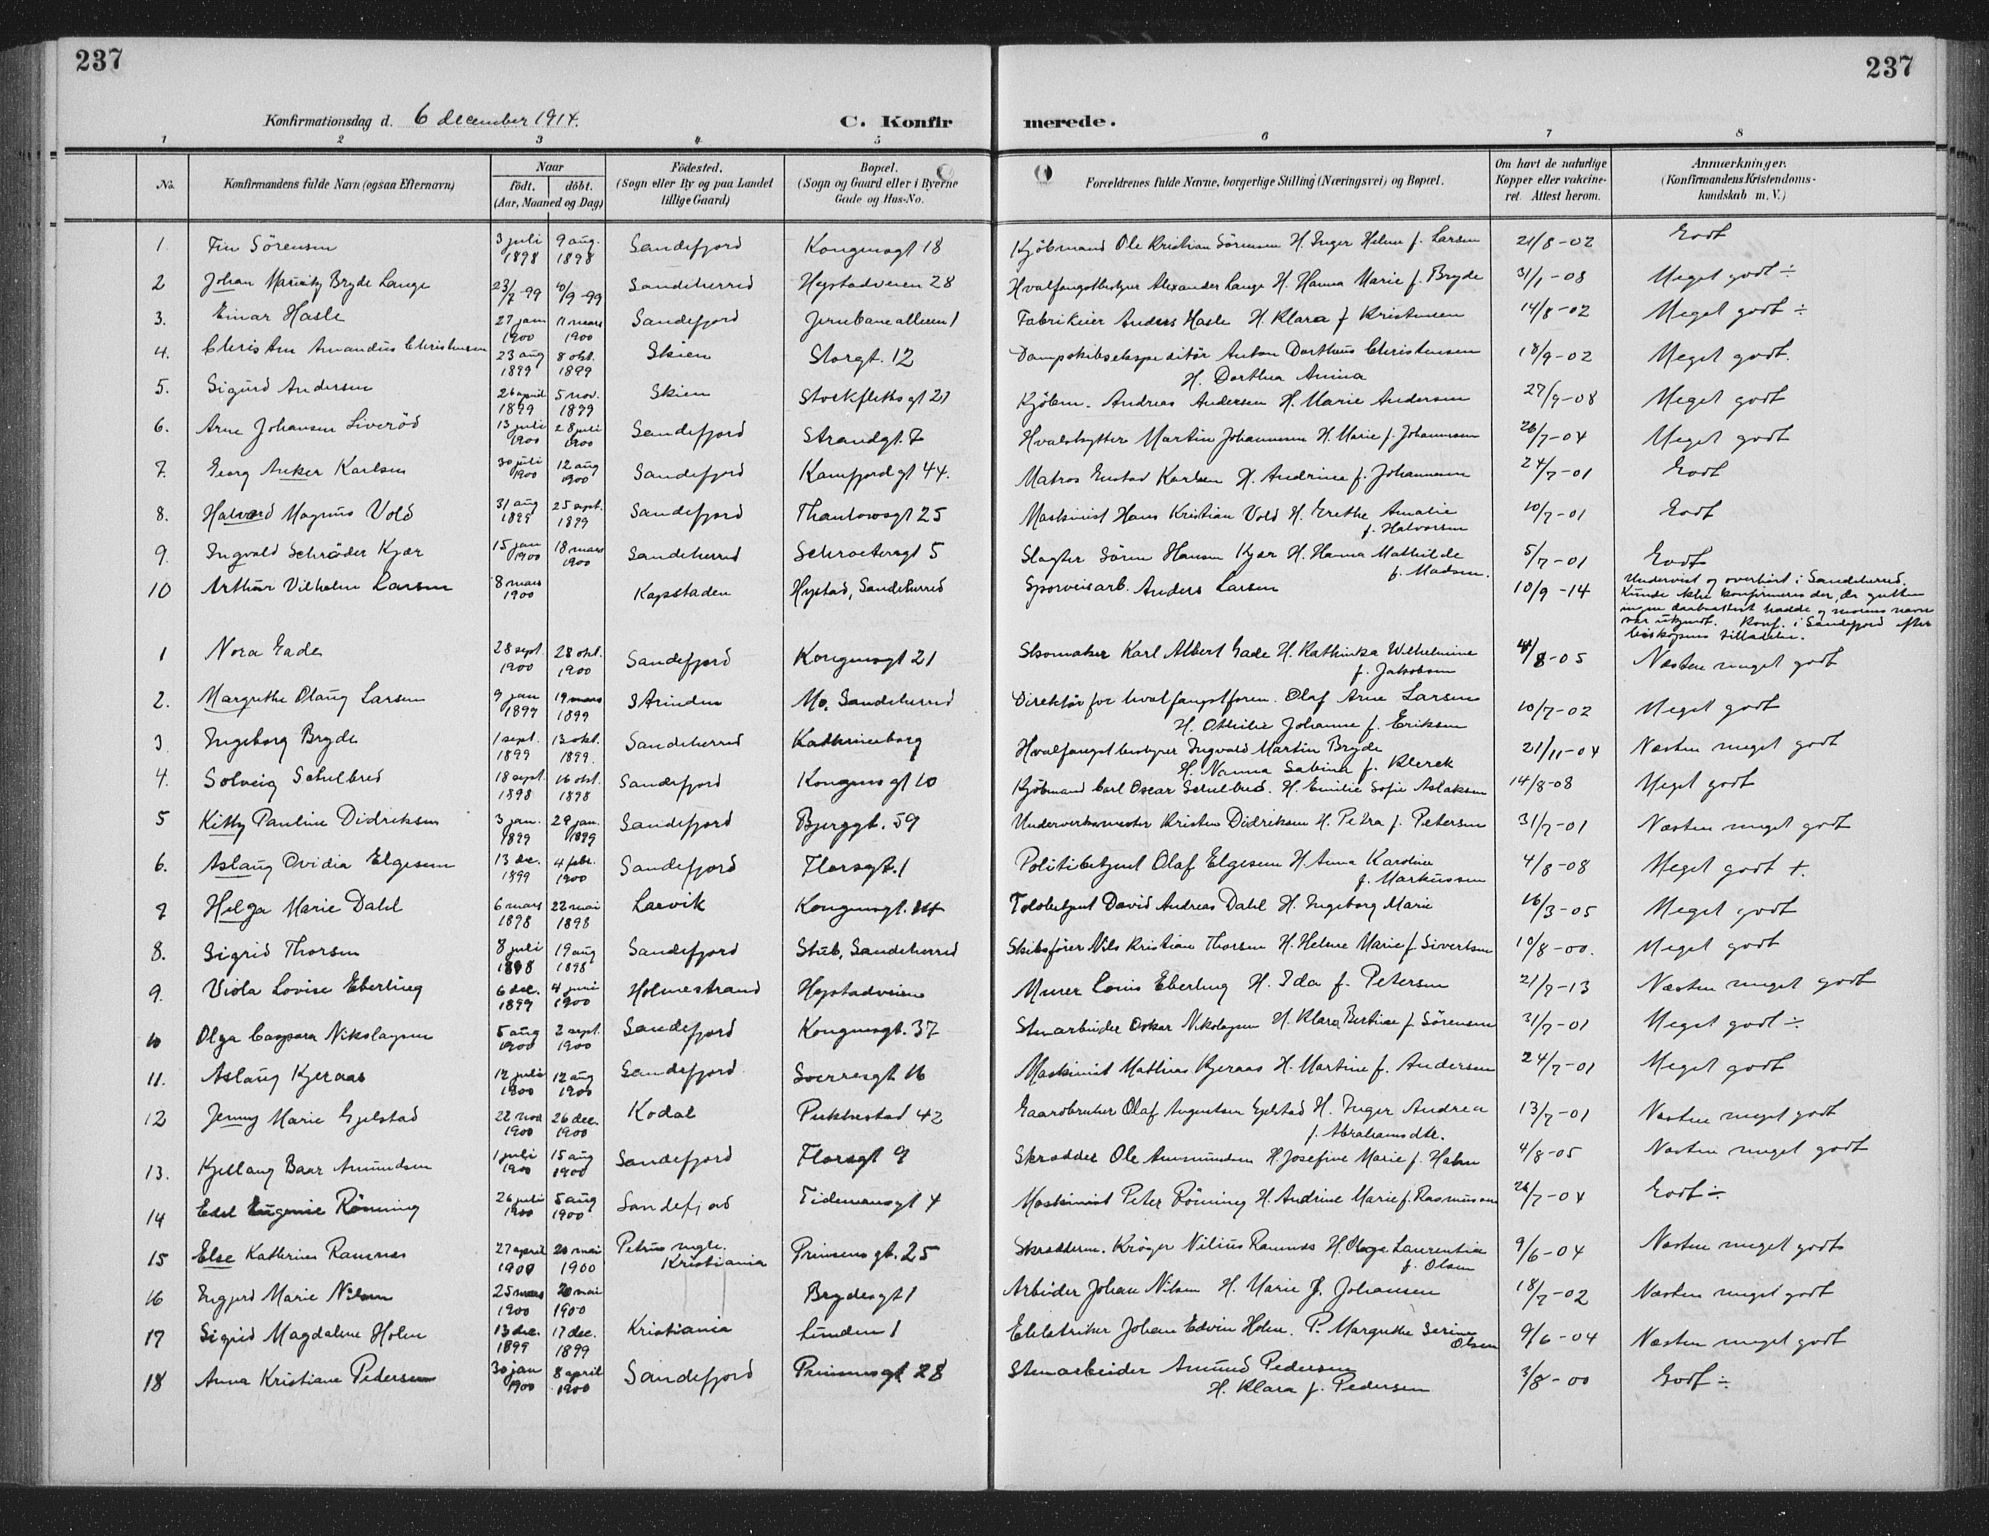 237
237
Konfirmationsdag d. 6 december 1914.
C. Konfirmerede.
1 2 3 4 5 6 7 8
No.
Konfirmandens fulde Navn (ogsaa Efternavn)
Naar
födt. döbt.
(Aar, Maaned og Dag)
Födested.
(Sogn eller By og paa Landet
tillige Gaard)
Bopæl.
(Sogn og Gaard eller i Byerne
Gade og Hus-No.
Forældrenes fulde Navne, borgerlige Stilling (Næringsvei) og Bopæl.
Om havt de naturlige
Kopper eller vakcine-
ret. Attest herom.
Anmærkninger.
(Konfirmandens Kristendoms-
kundskab m. V.)
1. Finn Sörensen 3 juli 1898 9 aug. 1898 Sandefjord Kongensgt 18 Kjöbmand Ole Kristian Sörensen H. Inger Helene f. Larsen 21/8-02 Godt
2 Johan Mauritz Bryde Lange 23/7-99 Sandeherred Hystadveien 28 Hvalfangstbestyrer Alexander Lange H. Hanna Marie f. Bryde 31/1-08 Meget godt ÷
3. Einar Hasle 27 jan 1900 11 mars 1900 Sandefjord Jernbanealleen 1 Fabrikeier Anders Hasle H. Klara f Kristensen 14/8-02 Meget godt ÷
4. Christen Amandus Christensen 23 aug 1899 8 okt. 1899 Skien Storgt. 12 Dampskibsekspeditör Anton Dorthius Christensen 18/9-02 Meget godt.
H. Dorthea Amina
5. Sigurd Andersen 26 april 1899 5 nov. 1899 Skien Stockflethsgt 21 Kjöbm. Andreas Andersen H. Marie Andersen 27/9-08 Meget godt
6. Arne Johansen Liveröd 13 juli 1900 28 juli 1900 Sandefjord Strandgt. 7 Hvalskytter Martin Johannesen H. Marie f. Johannesen 26/7-04 Meget godt
7. Georg Anker Karlsen 30 juli 1900 12 aug 1900 Sandefjord Kamfjordgt 44. Matros Gustav Karlsen H. Andrine f. Johannesen 24/7-01 Godt
8. Halvard Magnus Vold 31 aug 1899 25 sept. 1899 Sandefjord Thaulowsgt 25 Maskinist Hans Kristian Vold H. Grethe Amalie 10/7-01 Godt
f. Halvorsen
9. Ingvald Schröder Kjær 15 jan 1900 18 mars 1900 Sandeherred Schroetersgt 5 Slagter Sören Hansen Kjær H. Hanna Mathilde 5/7-01 Godt
f. Madsen.
10 Arthur Vilhelm Larsen 8 mars 1900 Kapstaden Hystad, Sandeherred Sporveisarb. Anders Larsen 10/9-14 Undervist og overhört i Sandeherred.
Kunde ikke konfirmeres der, da gutten
ingen daabsattest hadde og morens navn
var ukjendt. Konf. i Sandefjord efter
biskopens tilladelse.
1 Nora Gade 28 sept 1900 28 okt. 1900 Sandefjord Kongensgt 21 Skomaker Karl Albert Gade H. Kathinka Wilhelmine 4/8-05 Næsten meget godt
f. Jakobsen
2. Margrethe Olaug Larsen 9 jan 1899 19 mars 1899 Strinden Mo, Sandeherred Direktör for hvalfangstforen. Olaf Arne Larsen 10/7-02 Meget godt
H. Othilie Johanne f. Eriksen
3 Ingeborg Bryde 1 sept. 1899 13 okt. 1899. Sandeherred Kathrineborg Hvalfangstbestyrer Ingvald Martin Bryde 21/11-04 Næsten meget godt
H. Nanna Sabina f. Klerck
4. Solveig Schelbred 18 sept. 1898 16 okt. 1898 Sandefjord Kongensgt 10 Kjöbmand Carl Oscar Schelbred. H. Emilie Sofie Aslaksen 14/8-08 Meget godt
5 Kitty Pauline Didriksen 3 jan. 1899 29 jan. 1899 Sandefjord Bjerggt. 59 Underverksmester Kristen Didriksen H. Petra f. Petersen 31/7-01 Næsten meget godt
6. Aslaug Ovidia Elgesem 13 de. 1899 4 febr. 1900 Sandefjord Florsgt. 1 Politibetjent Olaf Elgesem H. Anna Karoline 4/8-08 Meget godt +.
f. Markussen
7 Helga Marie Dahl 6 mars 1898 22 mai 1898 Larvik Kongensgt. 14 Toldbetjent David Andreas Dahl H. Ingeborg Marie 16/3-05 Meget godt
8. Sigrid Thorsen 8 juli 1898 19 aug 1898 Sandefjord Stub, Sandeherred Skibsförer Nils Kristian Thorsen H. Helene Marie f. Sivertsen 10/8-00. Meget godt
9. Viola Lovise Eberling 6 dec. 1899 4 juni 1900 Holmestrand Hystadveien Murer Louis Eberling H. Ida f. Petersen 21/7-13 Næsten meget godt
10 Olga Caspara Nikolaysen 5 aug 1900 2 sept. 1900 Sandefjord Kongensgt. 37 Stenarbeider Oskar Nikolaysen H. Klara Bertine f. Sörensen 31/7-01 Meget godt ÷
11. Aslaug Kjeraas 12 juli 1900 12 aug 1900 Sandefjord Sverresgt 16 Maskinist Mathias Kjeraas H. Martine f. Andersen 24/7-01 Meget godt
12 Jenny Marie Gjelstad 22 nov 1900 26 dec. 1900 Kodal Pukkestad 42 Gaardbruker Olaf Augustsen Gjelstad H. Inger Andrea 13/7-01 Næsten meget godt
f. Abrahamsdtr.
13. Kjellaug Baar Amundsen 1 juli 1900 15 aug 1900 Sandefjord Florsgt 9 Skrædder Ole Ammundsen H. Josefine Marie f. Halm 4/8-05 Næsten meget godt
14 Edel Eugenie Rönning 26 juli 1900 5 aug 1900 Sandefjord Tidemansgt 4 Maskinist Peter Rönning H. Andrine Marie f. Rasmussen 26/7-04 Godt ÷
15 Else Kathrine Ramnæs 27 april 1900 20 mai 1900 Petrus mgh. Kristiania Prinsensgt. 25 Skrædderm. Kröger Nilius Ramnæs H. Olga Laurentia 9/6-04 Næsten meget godt
f. Olsen
16 Ingjerd Marie Nilsen 25 mars 1900 20 mai 1900 Brydesgt 1 Arbeider Johan Nilsen H. Marie f. Johansen 18/7-02 Næsten meget godt
17 Sigrid Magdalene Holm 13 dec. 1899 17 dec. 1899 Kristiania Lunden 1 Elektriker Johan Edvin Holm. P. Margrethe Serine Olsen 9/6-04 Næsten meget godt
18 Anna Kristiane Pedersen 30 jan 1900 8 april 1900 Sandefjord Prinsensgt 28 Stenarbeider Amund Pedersen 3/8-00 Godt ÷
H. Klara f. Pedersen